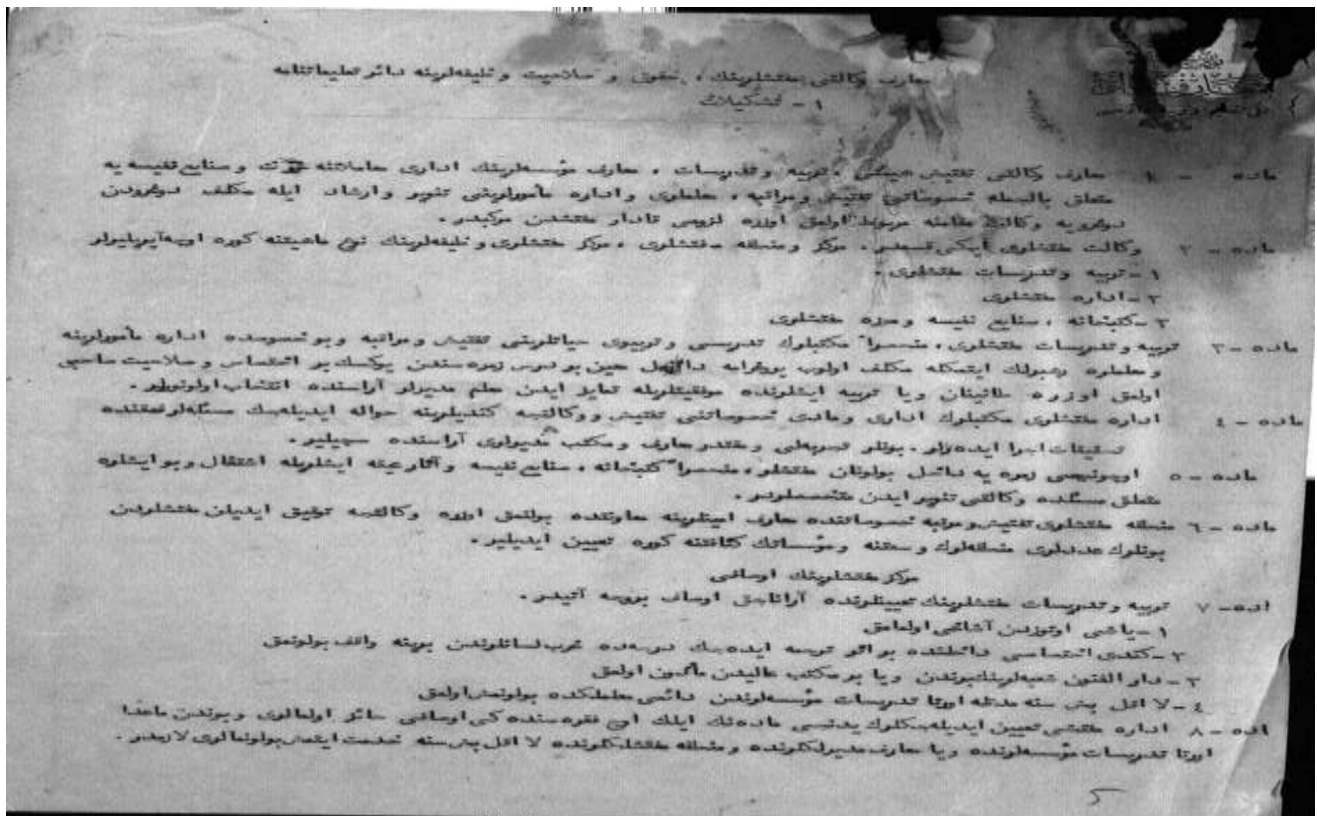 معارف وكالتی مفتشلرینك ، حقوق و صلاحیت وظیفه‌لرینه دائر تعلیماتنامه
١ - تشكیلات
ماده - ١ معارف وكالتی تفتیش هیئتی ، تربیه و تدریسات ، معارف مؤسسه‌لرینك اداری معاملاتنه و صنایع نفیسه یه
متعلق بالجمله خصوصاتی تفتیش و مراقبه ، معلملری و اداره مأمورلرینی تنویر و ارشاد ایله مكلف دوغرودن
دوغرویه وكالت مقامنه مربوط اولمق اوزره لزومی قادار مفتشدن مركبدر .
ماده - ٢ وكالت مفتشلری ایكی قسمدر . مركز و منطقه مفتشلری ، مركز مفتشلری وظیفه‌لرینك نوع ماهیتنه كوره اوچه آیریلیرلر
١ - تربیه و تدریسات مفتشلری .
٢ - اداره مفتشلری
٣ - كتبخانه ، صنایع نفیسه و موزه مفتشلری
ماده - ٣ تربیه و تدریسات مفتشلری ، منحصراً مكتبلرك تدریسی و تربیوی حیاتلرینی تفتیش و مراقبه و بو خصوصده اداره مأمورلرینه
و معلملره رهبرلك ایتمكله مكلف اولوب پروغرامه داخل معین بر درس زمره سندن یوكسك بر اختصاص و صلاحیت صاحبی
اولمق اوزره طانینان ویا تربیه ایشلرنده موفقیتلریله تمایز ایدن معلم مدیرلر آراسنده انتخاب اولونورلر .
ماده - ٤ اداره مفتشلری مكتبلرك اداری و مادی خصوصاتنی تفتیش و وكالتجه كندیلرینه حواله ایدیله‌جك مسئله‌لر حقنده
تحقیقات اجرا ایدرلر . بونلر تجربه‌لی و مقتدر معارف و مكتب مدیرلری آراسنده سچیلیر .
ماده - ٥ اوچونجی زمره یه داخل بولونان مفتشلر ، منحصراً كتبخانه ، صنایع نفیسه و آثار عتیقه ایشلریله اشتغال و بو ایشلره
متعلق مسئله‌ده وكالتی تنویر ایدن متخصصلردر .
ماده - ٦ منطقه مفتشلری تفتیش و مراقبه خصوصاتنده معارف امینلرینه معاونتده بولنمق اوزره وكالتجه توفیق ایدیلن مفتشلردن
بونلرك عددلری منطقه‌لرك وسعتنه و مؤسساتك كثافتنه كوره تعیین ایدیلیر .
مركز مفتشلرینك اوصافی
اده - ٧ تربیه و تدریسات مفتشلرینك تعیینلرنده آراناجق اوصاف بروجه آتیدر .
١ - یاشی اوتوزدن آشاغی اولمامق
٢ - كندی اختصاصی داخلنده بر اثر ترجمه ایده‌جك درجه‌ده غرب لسانلرندن برینه واقف بولونمق
٣ - دار الفنون شعبه‌لرینك برندن ویا بر مكتب عالیدن مأذون اولمق
٤ - لا اقل بش سنه مدتله اورتا تدریسات مؤسسه‌لرندن دائمی معلملكده بولونمش اولمق
اده - ٨ اداره مفتشی تعیین ایدیله‌جكلرك یدنجی ماده‌نك ایلك اوچ فقره سنده كی اوصافی حائز اولمالری و بوندن ماعدا
اورتا تدریسات مؤسسه‌لرنده ویا معارف مدیرلكلرنده و منطقه مفتشلكلرنده لا اقل بش سنه خدمت ایتمش بولونمالری لازمدر .